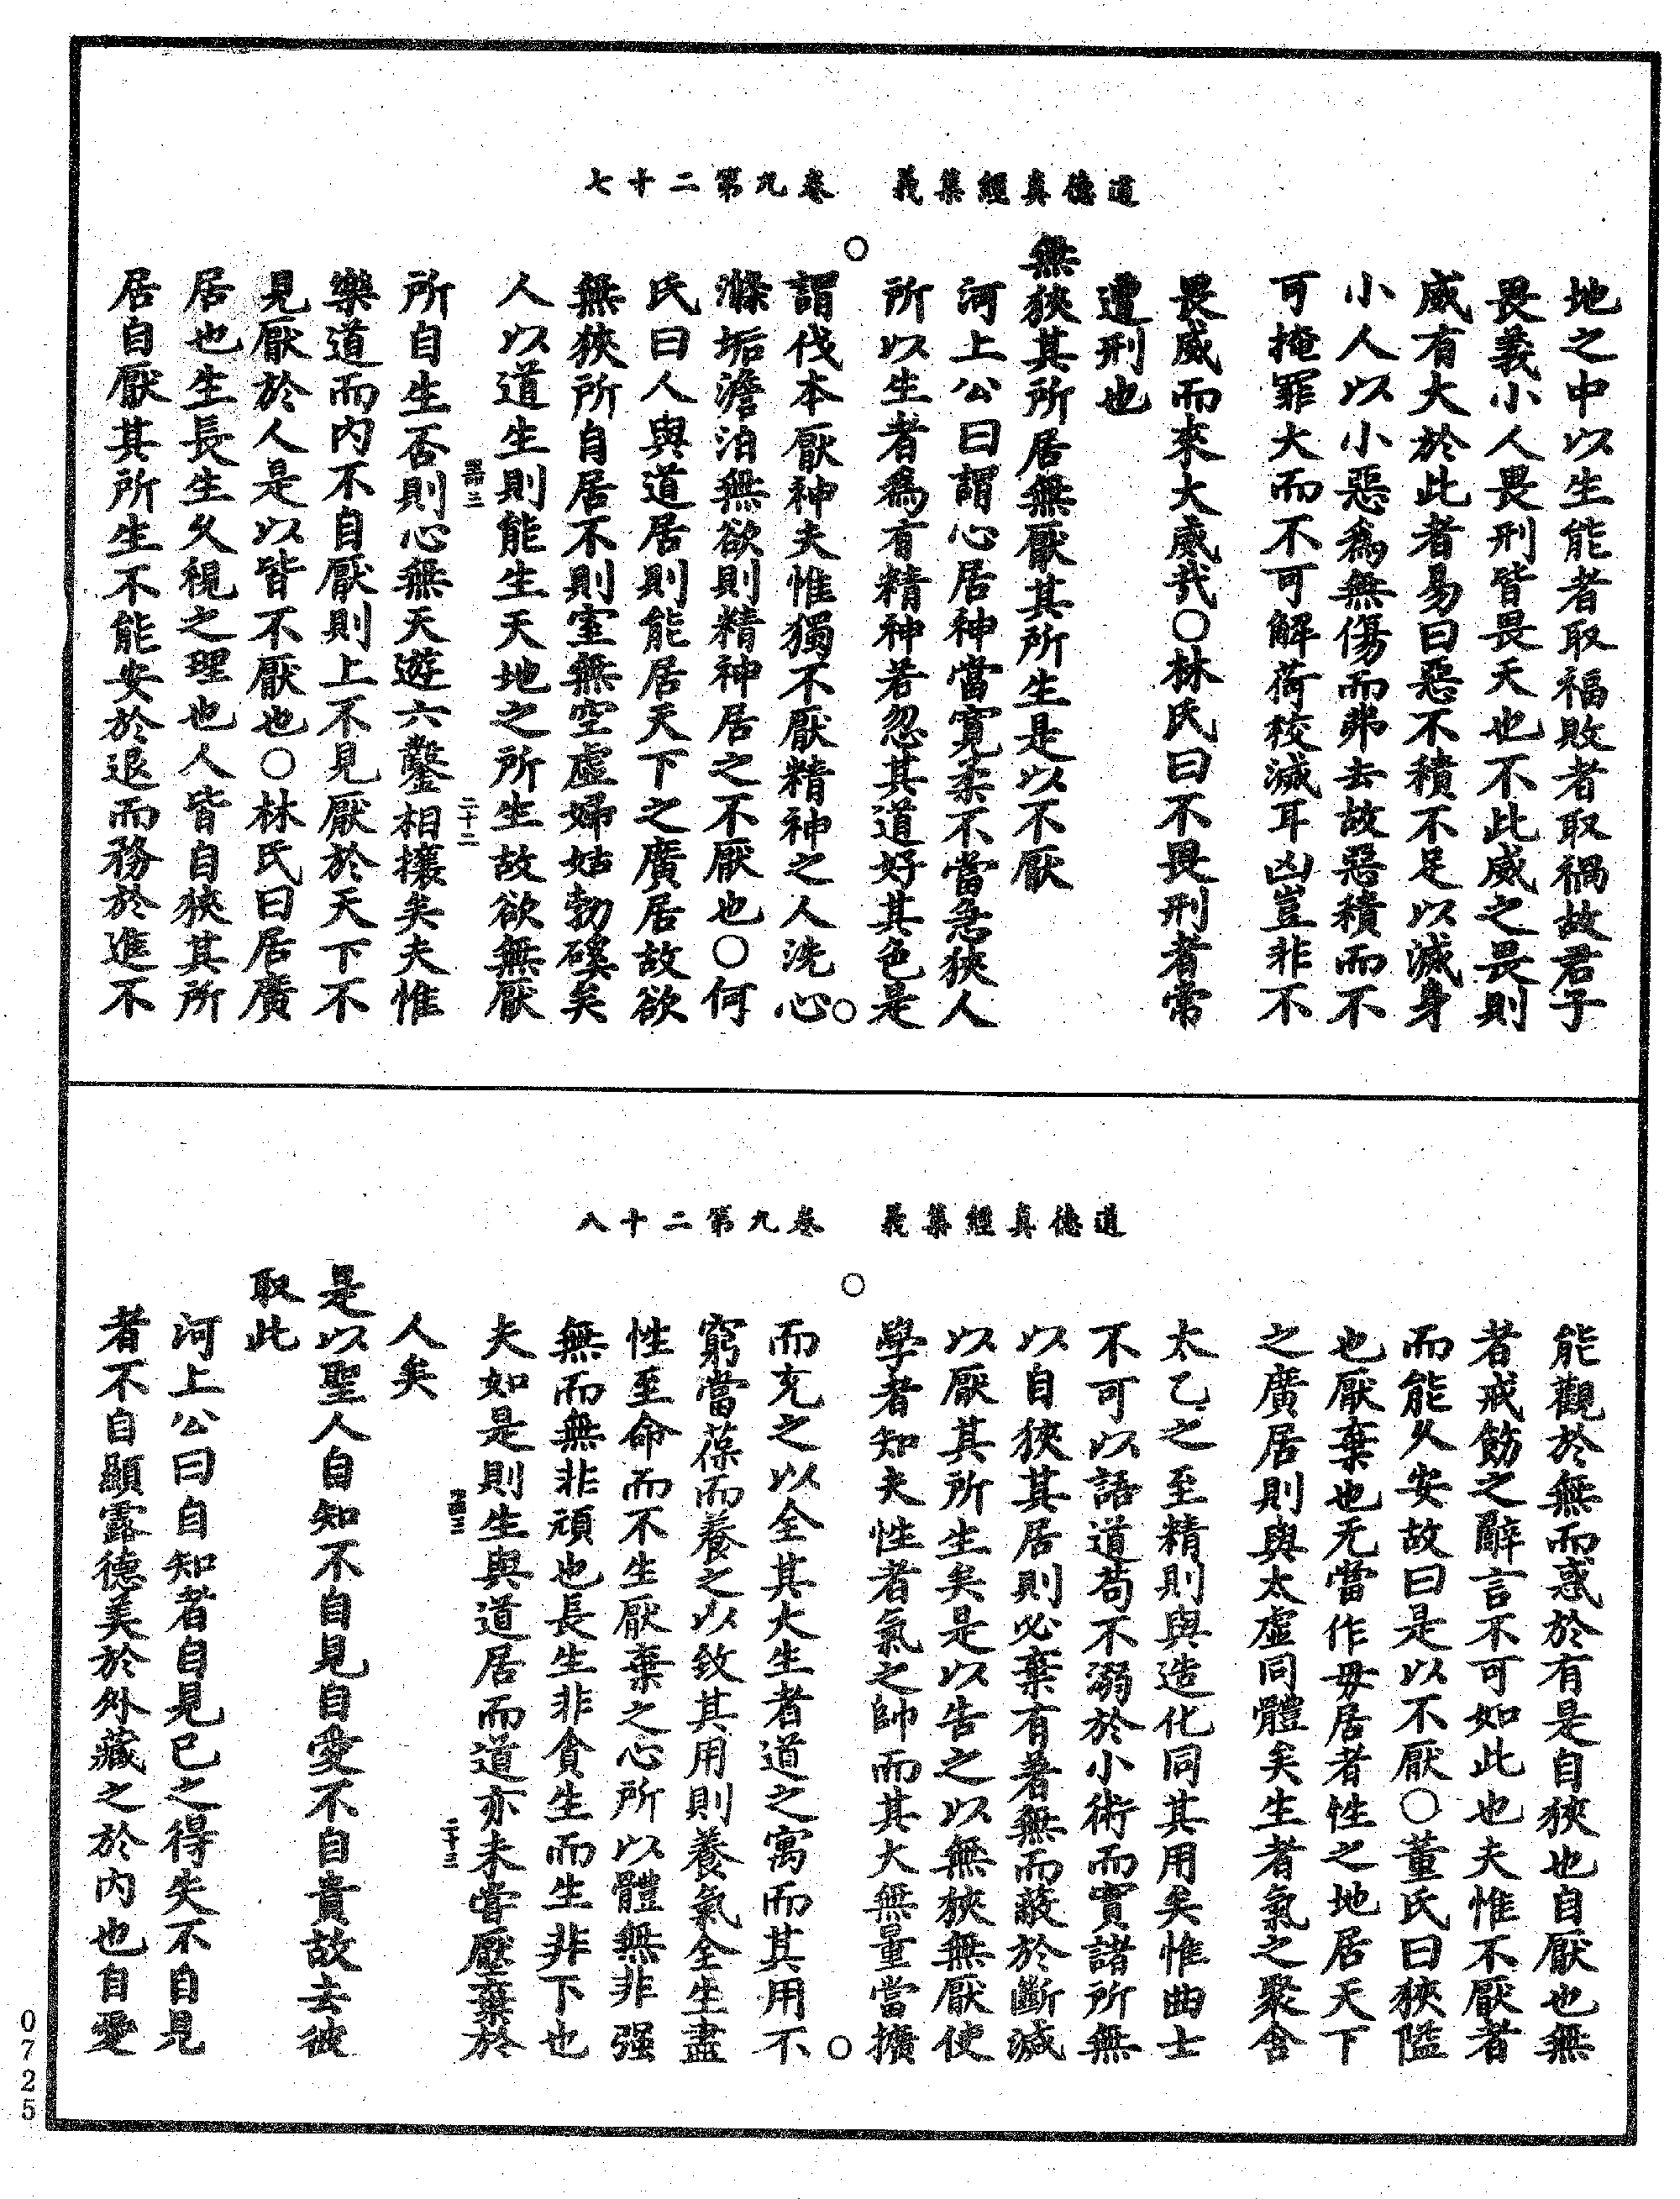 道德真經集義　卷九第二十七
地之中以生能者取福敗者取禍故君子
畏義小人畏刑皆畏天也不此威之畏則
威有大於此者易曰惡不積不足以滅身
小人以小惡為無傷而弗去故惡積而不
可掩罪大而不可解荷校滅耳凶豈非不
畏威而來大威哉○林氏曰不畏刑者常
遭刑也
無狹其所居無厭其所生是以不厭
河上公曰謂心居神當寬柔不當急狹人
所以生者為有精神若忽其道好其色是
謂伐本厭神夫惟獨不厭精神之人洗心
滌垢澹泊無欲則精神居之不厭也○何
氏曰人與道居則能居天下之廣居故欲
無狹所自居不則室無空虛婦姑勃磎矣
人以道生則能生天地之所生故欲無厭
所自生否則心無天遊六鑿相攘矣夫惟
樂道而內不自厭則上不見厭於天下不
見厭於人是以皆不厭也○林氏曰居廣
居也生長生久視之理也人皆自狹其所
居自厭其所生不能安於退而務於進不
二十二
道德真經集義　卷九第二十八
能觀於無而惑於有是自狹也自厭也無
者戒飭之辭言不可如此也夫惟不厭者
而能久安故曰是以不厭○董氏曰狹隘
也厭棄也无當作毋居者性之地居天下
之廣居則與太虛同體矣生者氣之聚含
太乙之至精則與造化同其用矣惟曲士
不可以語道苟不溺於小術而實諸所無
以自狹其居則必棄有著無而蔽於斷滅
以厭其所生矣是以告之以無狹無厭使
學者知夫性者氣之帥而其大無量當擴
而充之以全其大生者道之寓而其用不
窮當葆而養之以致其用則養氣全生盡
性至命而不生厭棄之心所以體無非强
無而無非頑也長生非貪生而生非下也
夫如是則生與道居而道亦未嘗壓棄於
人矣
二十三
是以聖人自知不自見自愛不自貴故去彼
取此
河上公曰自知者自見己之得失不自見
者不自顯露德美於外藏之於內也自愛
0725